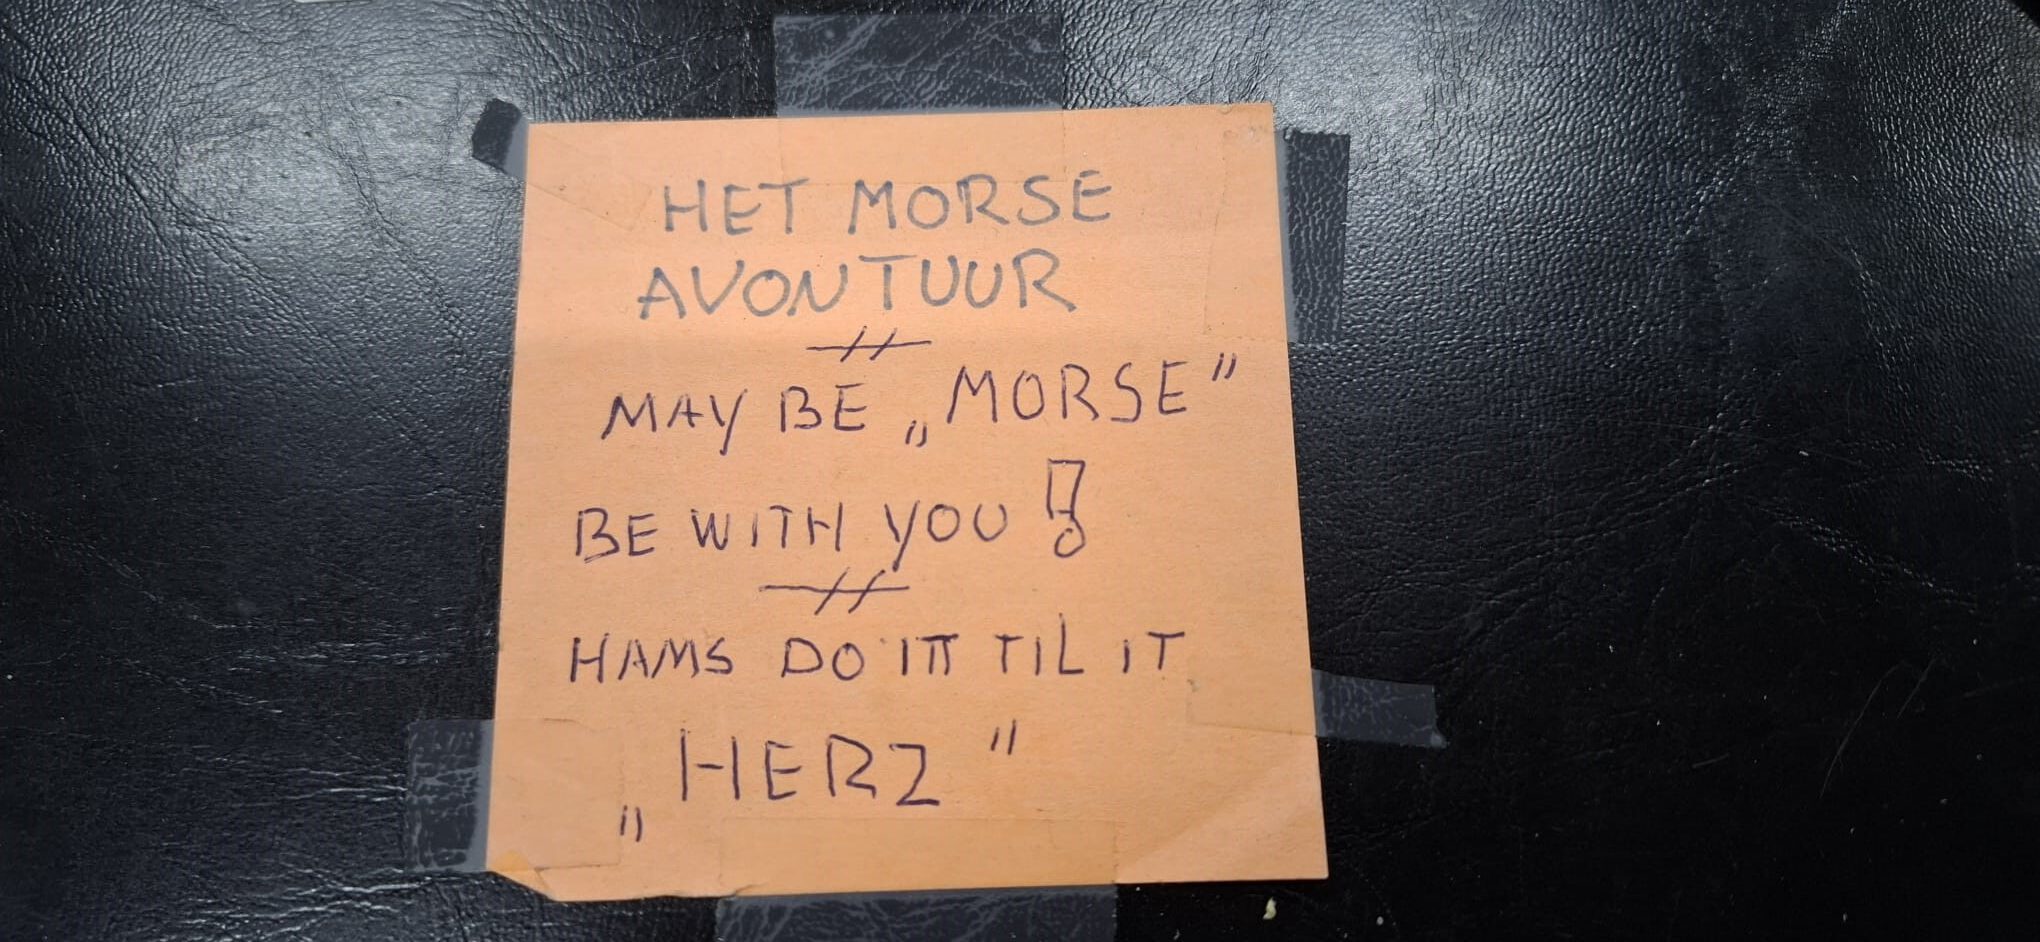 HET MORSE
AVONTUUR
MAY BE „MORSE"
BE WITH YOU!
HAMS DO ITT TIL IT
„HERZ"